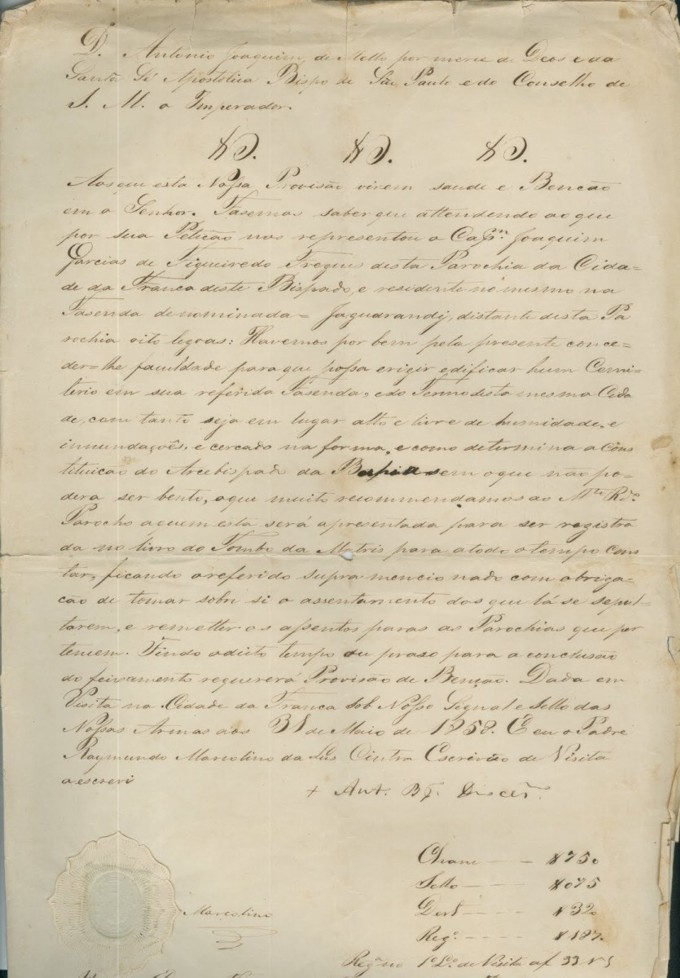 D. António Joaquim, de Mello por merce de Deos e da
Santa Sé Apostolica Bispo de São Paulo e do Conselho de
S. M. o Imperador.
Aos que esta Nossa Provisão virem saude e Benção
em o Senhor. Fasemos saber que attendendo ao que
por sua Petição nos representou o Cap.m Joaquim
Garcias de Figueiredo Freguez desta Parochia da Cida=
de da Franca deste Bispado, e residente no mesmo na
Fasenda denominada = Jaguarandy, distante desta Pa
rochia oito legoas: Havemos por bem pela presente conce=
der-lhe faculdade para que possa erigir edificar hum Cemi
terio em sua referida Fasenda, e do Termo desta mesma Cida
de, com tanto seja em lugar alto e livre de humidade, e
innundações, e cercado na forma, e como determina a Cons
tituicão do Arcebispado da Bahia sem o que não po=
dera ser bento, o que muito recommendamos ao M.to R.do
Parocho a quem esta será apresentada para ser registra
da no livro do Tombo da Matris para a todo o tempo cons
tar, ficando o referido supra mencionado com obriga=
cão de tomar sobre si o assentamento dos que lá se sepul=
tarem, e remetter os assentos paras as Parochias que per
tencem. Findo o dito tempo ou praso para a conclusão
do feixamento requererá Provisão de Benção. Dada em
Visita na Cidade da Franca sob Nosso Signal e Sello das
Nossas Armas aos 31 de Maio de 1858. E eu o Padre
Raymundo Marcolino da Luz Cintra Escrivão de Visita
a escrevi
+ Ant. Bp.
Chanc --- $750
Sello --- $075
$320
Reg.o --- $187.
Marcolino
Reg. no 1.o L.o de Visita a f 33